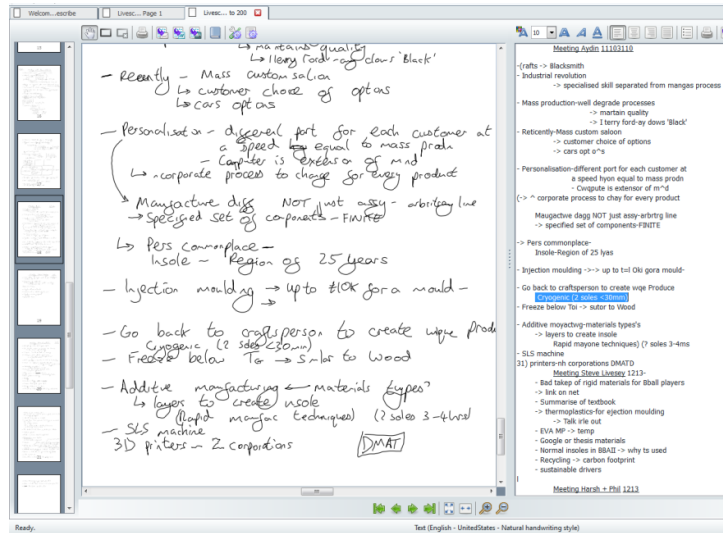 Welcom...escribe
Livesc... Page 1
Livesc... to 200
10
↳ maintains quality
↳ Henry Ford - any colour 'Black'
- Recently - Mass customsation
↳ customer choice of options
↳ cars options
- Personalisation - different part for each customer at
a speed equal to mass prodn
- Computer is extension of mind
↳ incorporate process to change for every product
↳ Manufacture diff NOT just assy - arbitrary line
→ Specified set of components - FINITE
↳ Pers commonplace -
Insole - Region of 25 years
- Injection moulding → up to £10K for a mould -
→
- Go back to craftsperson to create unique Produ
Cryogenic (2 soles <30min)
- Freeze below TG → Similar to Wood
- Additive manufacturing ← materials types?
↳ layers to create insole
(Rapid manufac techniques) (2 soles 3-4hrs)
- SLS machine
3D printers - 2 corporations DMAT
Meeting Aydin 11103110
-(rafts -> Blacksmith
- Industrial revolution
-> specialised skill separated from mangas process
- Mass production-well degrade processes
-> martain quality
-> I terry ford-ay dows 'Black'
- Reticently-Mass custom saloon
-> customer choice of options
-> cars opt o^s
- Personalisation-different port for each customer at
a speed hyon equal to mass prodn
- Cwqpute is extensor of m^d
(-> ^ corporate process to chay for every product
Maugactwe dagg NOT just assy-arbrtrg line
-> specified set of components-FINITE
-> Pers commonplace-
Insole-Region of 25 lyas
- Injection moulding >-> up to t=l Oki gora mould-
- Go back to craftsperson to create wqe Produce
Cryogenic (2 soles <30mm)
- Freeze below Toi -> sutor to Wood
- Additive moyactwyg-materials types's
-> layers to create insole
Rapid mayone techniques) (? soles 3-4ms
- SLS machine
31) printers-nh corporations DMATD
Meeting Steve Livesey 1213-
- Bad takep of rigid materials for Bball players
-> link on net
- Summarise of textbook
-> thermoplastics-for ejection moulding
-> Talk irle out
- EVA MP -> temp
- Google or thesis materials
- Normal insoles in BBAII -> why ts used
- Recycling -> carbon footprint
- sustainable drivers
l
Meeting Harsh + Phil 1213
Ready.
Text (English - UnitedStates - Natural handwriting style)